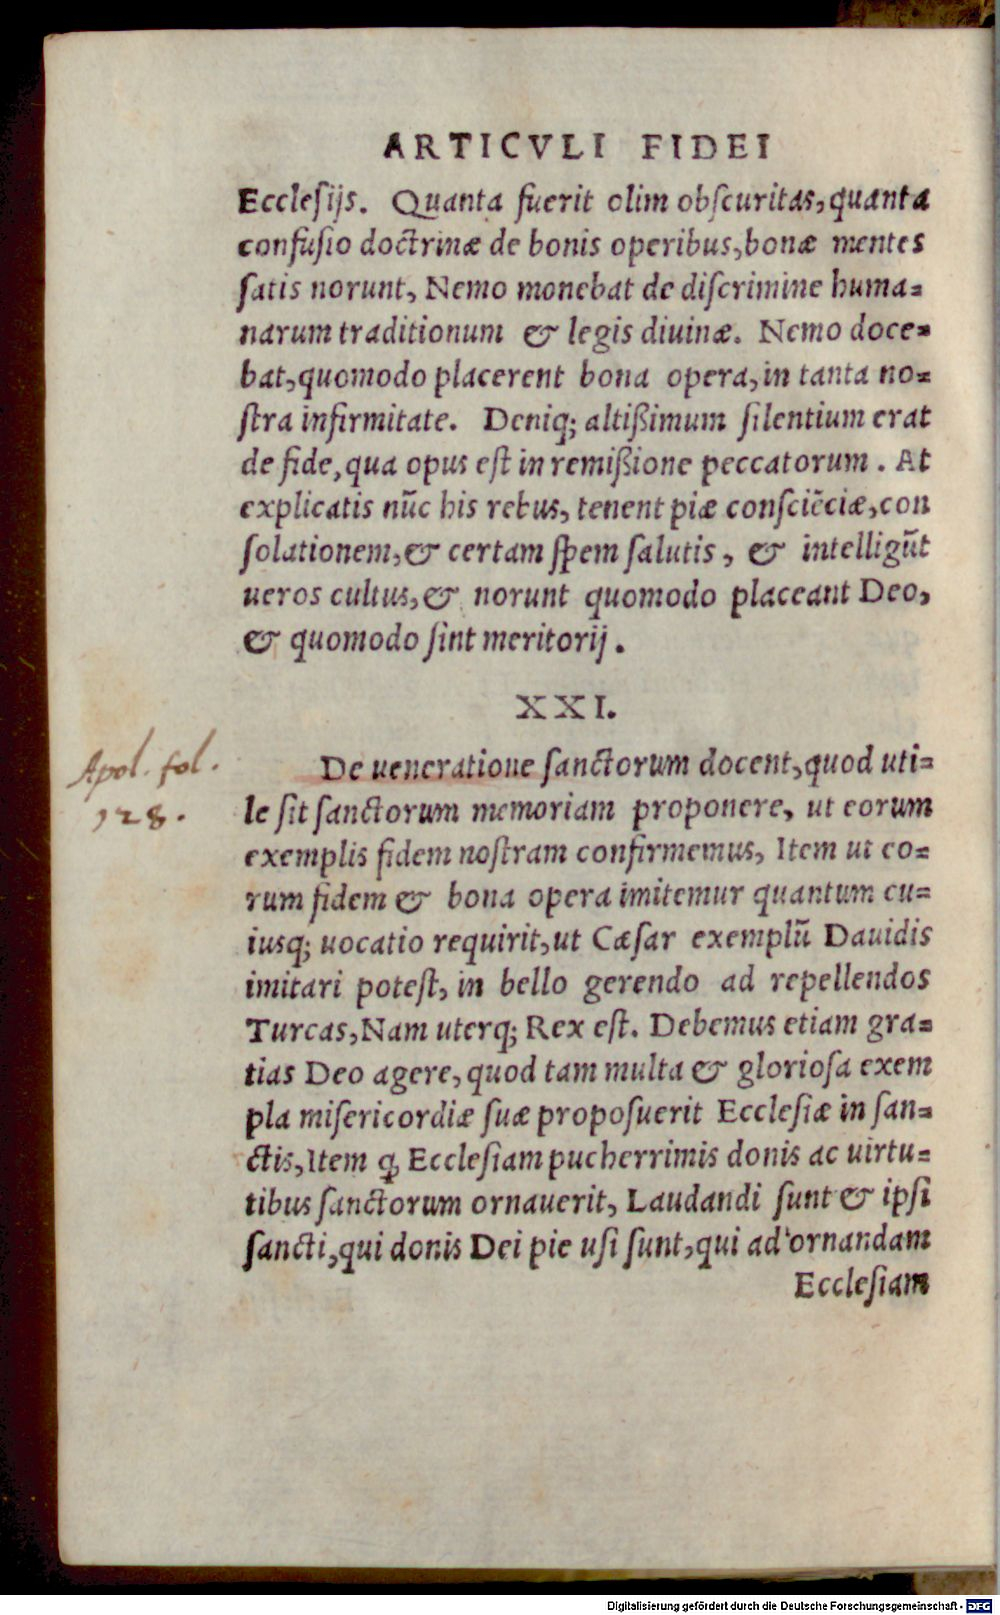 ARTICVLI FIDEI
Ecclesijs. Quanta fuerit olim obscuritas, quanta
confusio doctrinæ de bonis operibus, bonæ mentes
satis norunt, Nemo monebat de discrimine huma=
narum traditionum & legis diuinæ. Nemo doce=
bat, quomodo placerent bona opera, in tanta no=
stra infirmitate. Deniq; altißimum silentium erat
de fide, qua opus est in remißione peccatorum. At
explicatis nūc his rebus, tenent piæ consciēciæ, con
solationem, & certam spem salutis, & intelligūt
ueros cultus, & norunt quomodo placeant Deo,
& quomodo sint meritorij.
XXI.
Apol. fol.
128.
De ueneratione sanctorum docent, quod uti=
le sit sanctorum memoriam proponere, ut eorum
exemplis fidem nostram confirmemus, Item ut eo=
rum fidem & bona opera imitemur quantum cu=
iusq; uocatio requirit, ut Cæsar exemplū Dauidis
imitari potest, in bello gerendo ad repellendos
Turcas, Nam uterq; Rex est. Debemus etiam gra=
tias Deo agere, quod tam multa & gloriosa exem
pla misericordiæ suæ proposuerit Ecclesiæ in san=
ctis, Item ꝙ Ecclesiam pucherrimis donis ac uirtu=
tibus sanctorum ornauerit, Laudandi sunt & ipsi
sancti, qui donis Dei pie usi sunt, qui ad ornandam
Ecclesiam
Digitalisierung gefördert durch die Deutsche Forschungsgemeinschaft - DFG